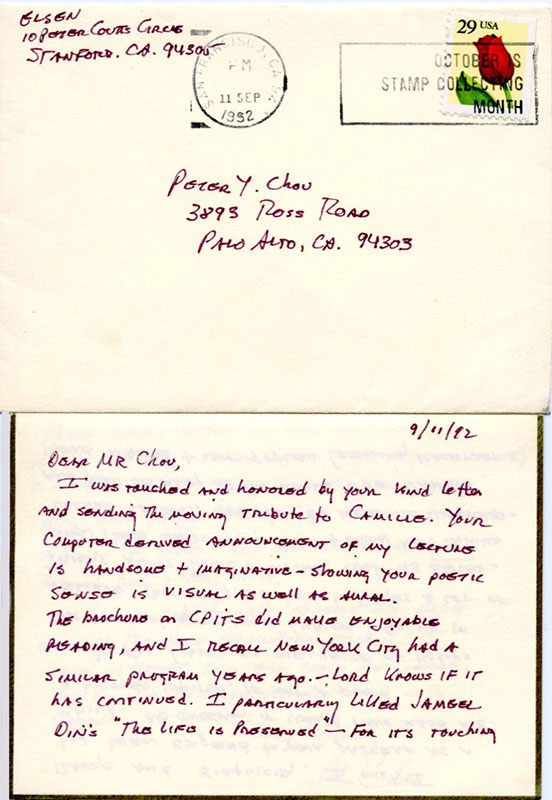 ELSEN
10 PETER COUTTS CIRCLE
STANFORD. CA. 94305
29 USA
SAN FRANCISCO, CA
PM
11 SEP
1992
OCTOBER IS
STAMP COLLECTING
MONTH
PETER Y. CHOU
3893 ROSS ROAD
PALO ALTO, CA. 94303
9/11/92
DEAR MR CHOU,
I WAS TOUCHED AND HONORED BY YOUR KIND LETTER
AND SENDING THE MOVING TRIBUTE TO CAMILLE. YOUR
COMPUTER DERIVED ANNOUNCEMENT OF MY LECTURE
IS HANDSOME + IMAGINATIVE - SHOWING YOUR POETIC
SENSE IS VISUAL AS WELL AS AURAL.
THE BROCHURE ON CPITS DID MAKE ENJOYABLE
READING, AND I RECALL NEW YORK CITY HAD A
SIMILAR PROGRAM YEARS AGO. - LORD KNOWS IF IT
HAS CONTINUED. I PARTICULARLY LIKED JAMEEL
DIN'S "THE LIFE IS PRESERVED" - FOR ITS TOUCHING